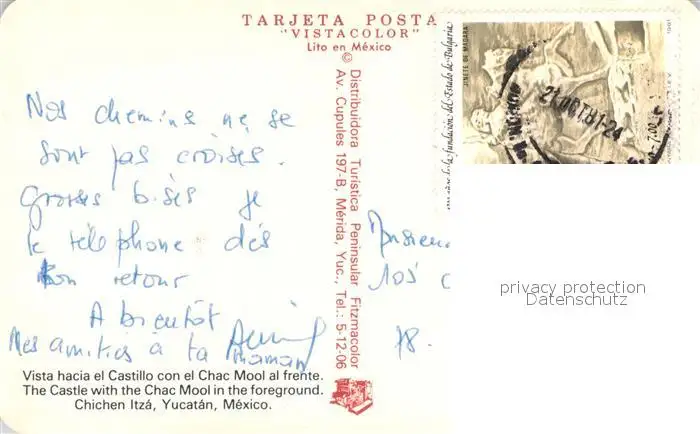 TARJETA POSTA
"VISTACOLOR"
Lito en México
©
Distribuidora Turística Peninsular Fitzmacolor
Av. Cupules 197-B, Mérida, Yuc., Tel.: 5-12-06
Nos chemins ne se
sont pas croisés.
Grosses bises je
te téléphone dès
ton retour
A bientôt
Mes amitiés à ta maman
Monsieu
105
78.
Vista hacia el Castillo con el Chac Mool al frente.
The Castle with the Chac Mool in the foreground.
Chichen Itzá, Yucatán, México.
de la fundación del Estado de Bulgaria
JINETE DE MADARA
1981
7.00
privacy protection
Datenschutz